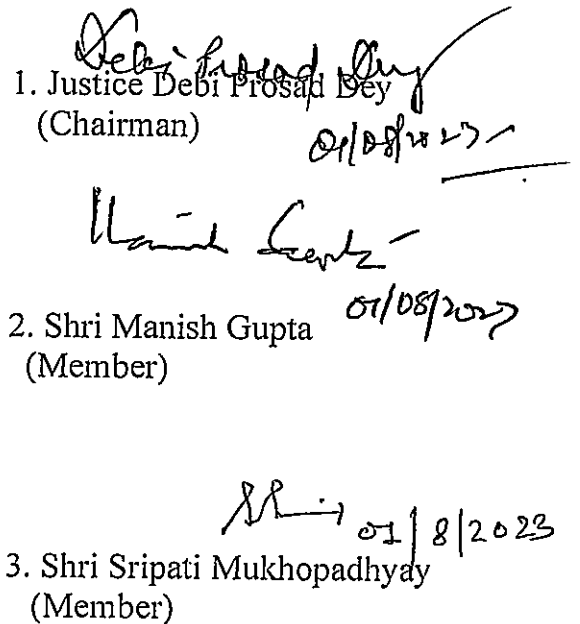 Debi Prosad Dey
1. Justice Debi Prosad Dey
(Chairman)
01/08/2023
Manish Gupta
01/08/2023
2. Shri Manish Gupta
(Member)
01/8/2023
3. Shri Sripati Mukhopadhyay
(Member)